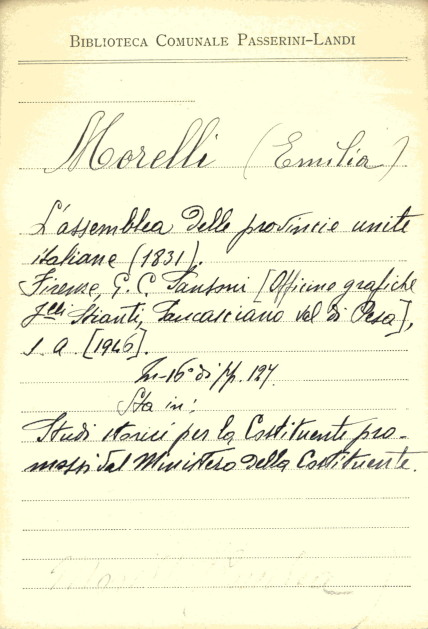 BIBLIOTECA COMUNALE PASSERINI-LANDI
Morelli (Emilia)
L'assemblea delle provincie unite
italiane (1831).
Firenze, G. C. Sansoni [Officine grafiche
F.lli Stianti, Sancasciano Val di Pesa],
s. a. [1946].
In-16° di pp. 127.
Sta in:
Studi storici per la Costituente pro-
mossi dal Ministero della Costituente.